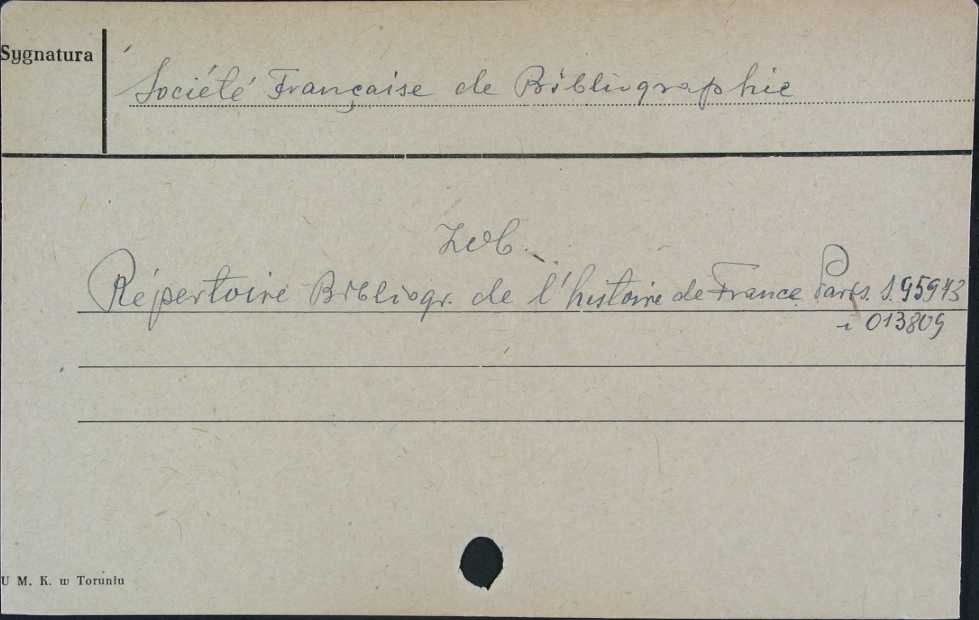 Sygnatura
Société Française de Bibliographie
zob.
Répertoire Bibliogr. de l'histoire de France Paris. S. 95973
i 013809
U M. K. w Toruniu